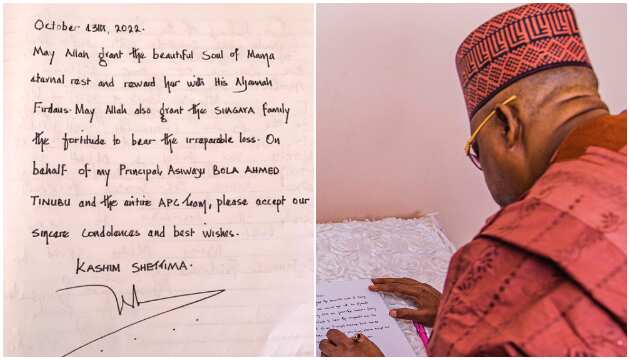 October 13th, 2022.
May Allah grant the beautiful soul of Mama
eternal rest and reward her with His Aljannah
Firdaus. May Allah also grant the SHAGAYA family
the fortitude to bear the irreparable loss. On
behalf of my Principal, Asiwaju BOLA AHMED
TINUBU and the entire APC team, please accept our
sincere condolences and best wishes.
KASHIM SHETTIMA.